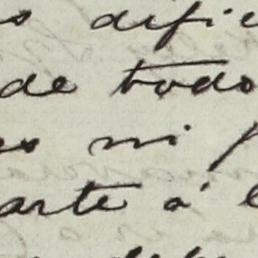 s dific
de todo
es ni p
arte á l